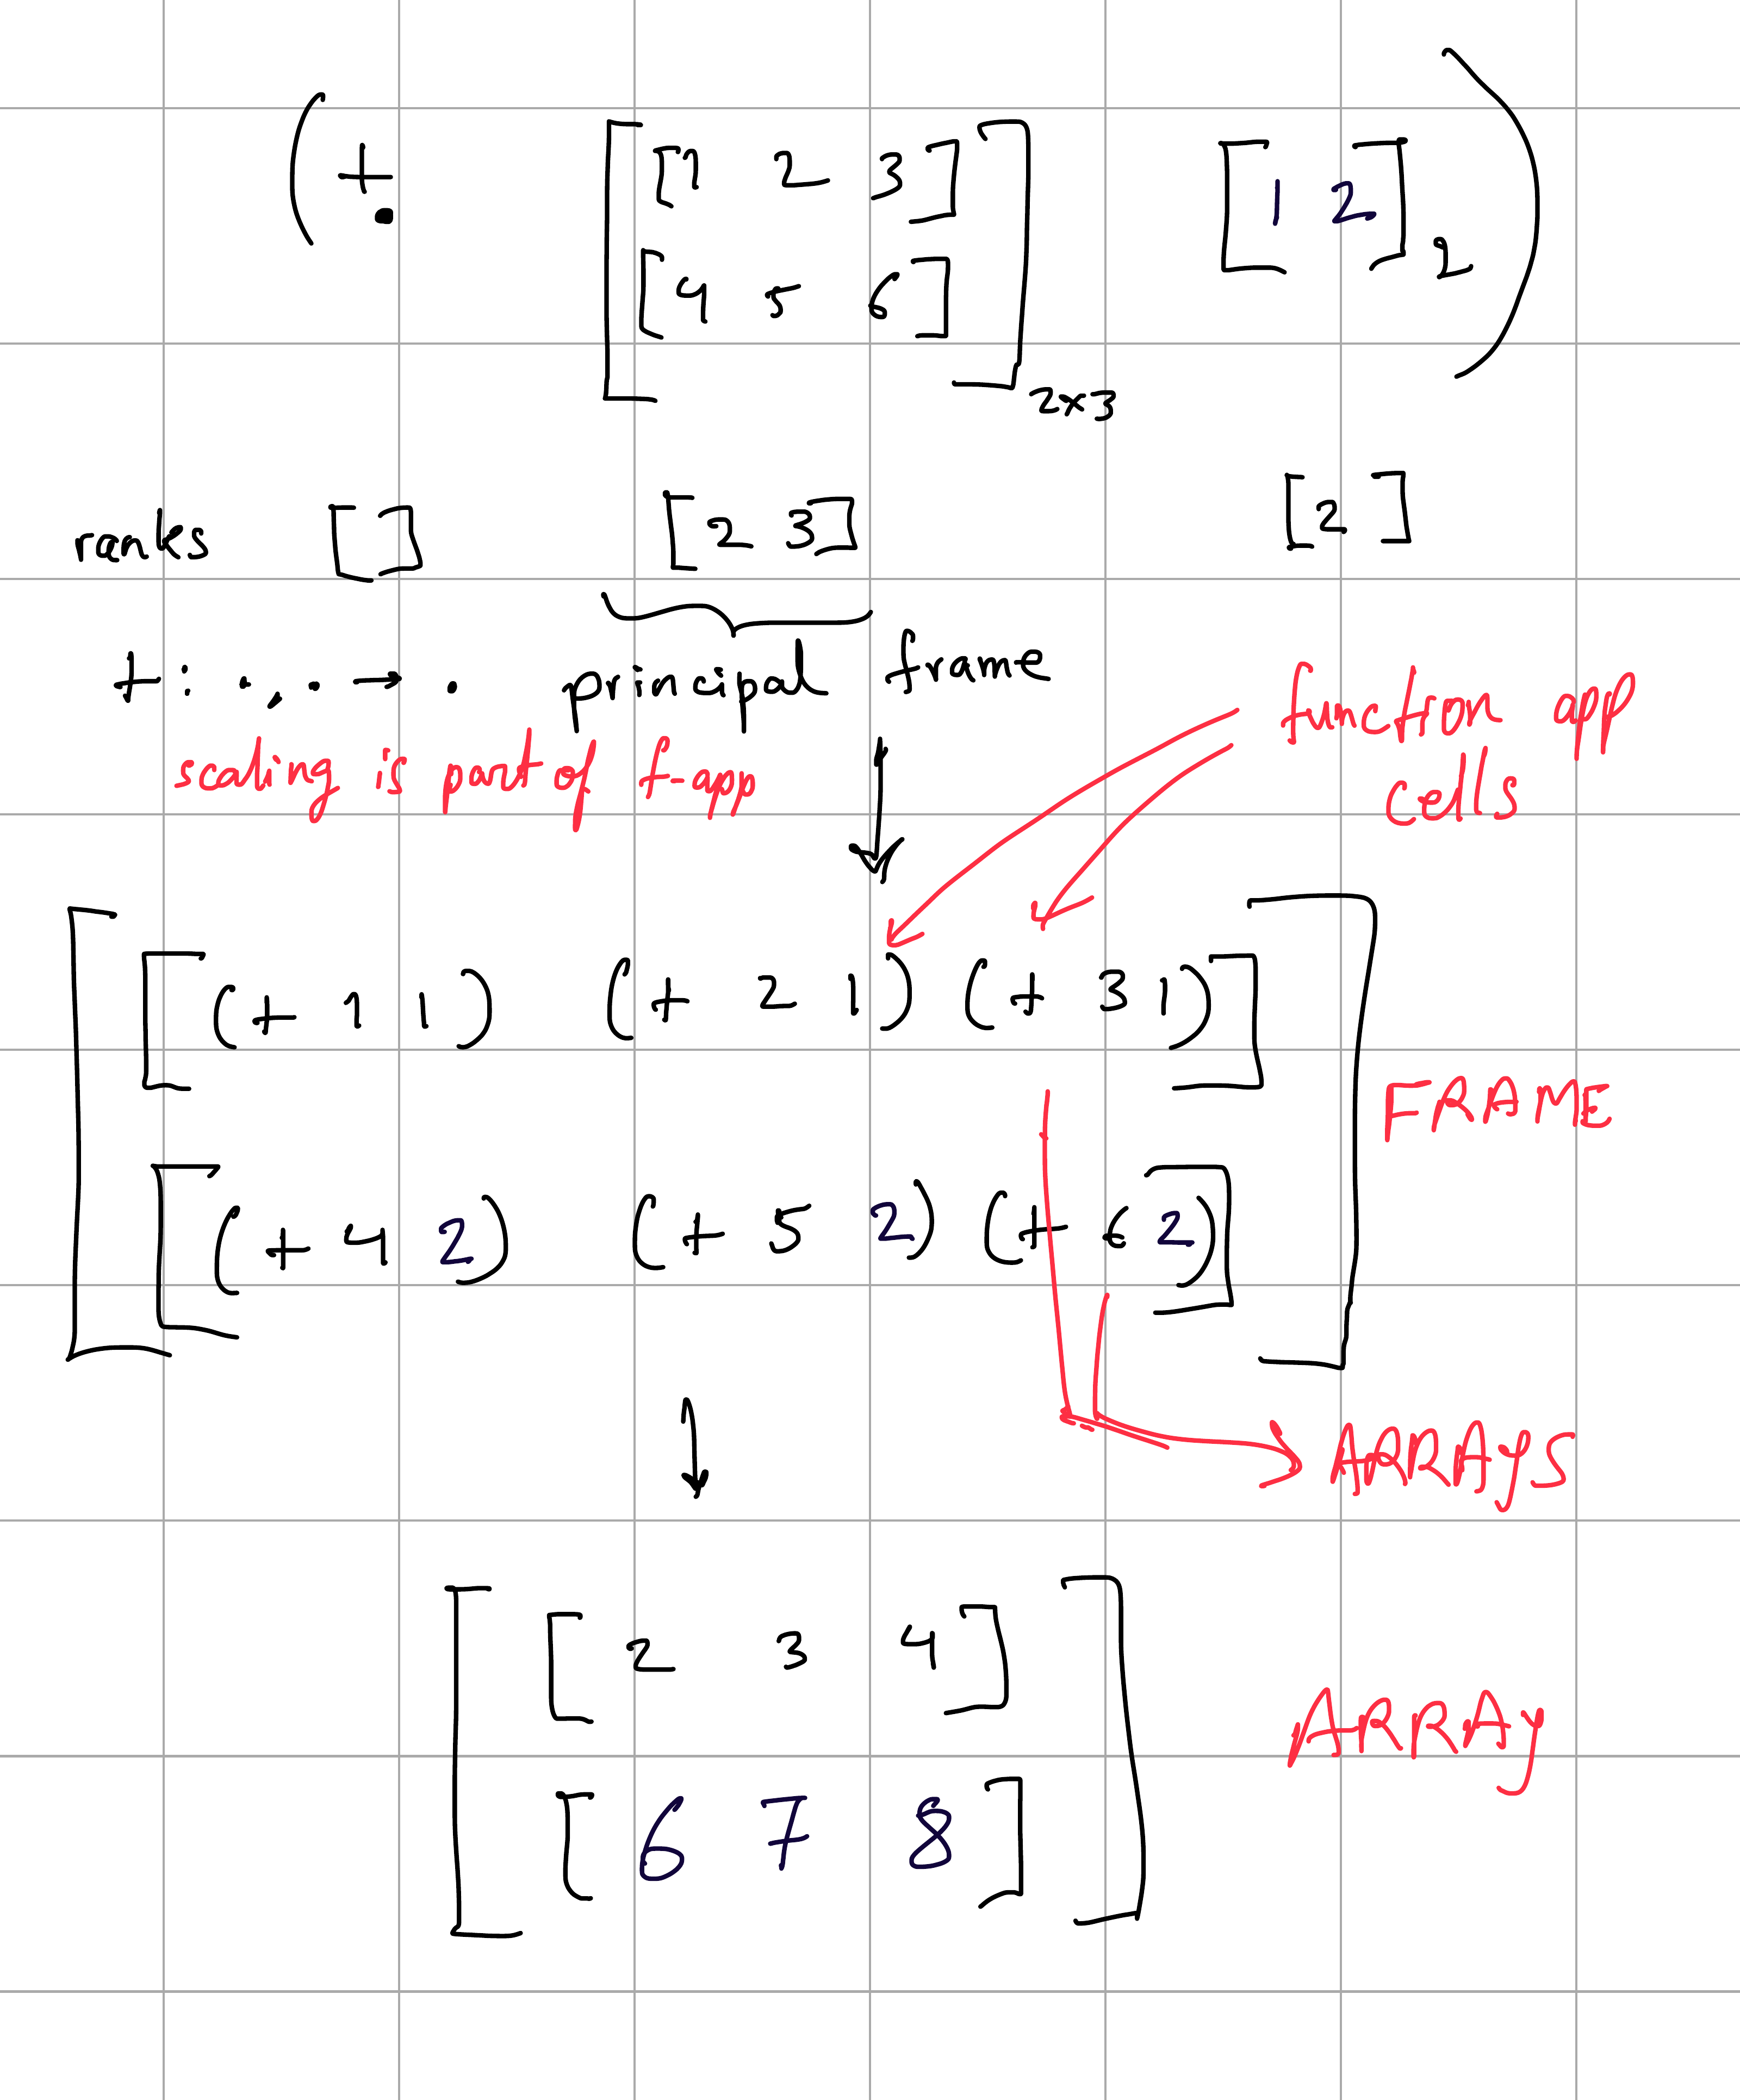 ( +. [ [1 2 3] [1 2] )
[4 5 6] ] 2×3 2
ranks [ ] [2 3] [2]
+ : ·, · → · principal frame
scaling is part of f-app
function app
cells
[ [ (+ 1 1) (+ 2 1) (+ 3 1) ]
FRAME
[ (+ 4 2) (+ 5 2) (+ 6 2) ] ]
ARRAYS
[ [ 2 3 4 ]
ARRAY
[ 6 7 8 ] ]